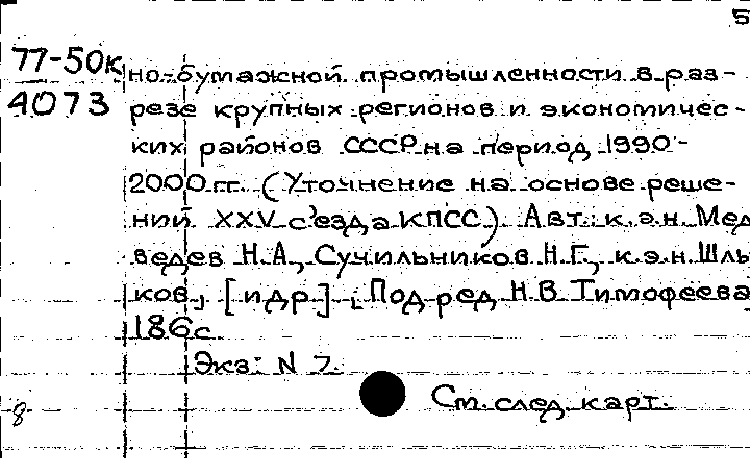 5
77-50к но-бумажной промышленности в раз-
4073 резе крупных регионов и экономичес-
ких районов СССР на период 1990-
2000 гг. (Уточнение на основе реше-
ний XXV с'езда КПСС). Авт.: к.э.н. Мед
ведев Н.А., Сучильников Н.Г., к.э.н. Шль
ков, [и др.]; Под ред. Н.В. Тимофеева
186с.
Экз: N 7.
8 См. след. карт.